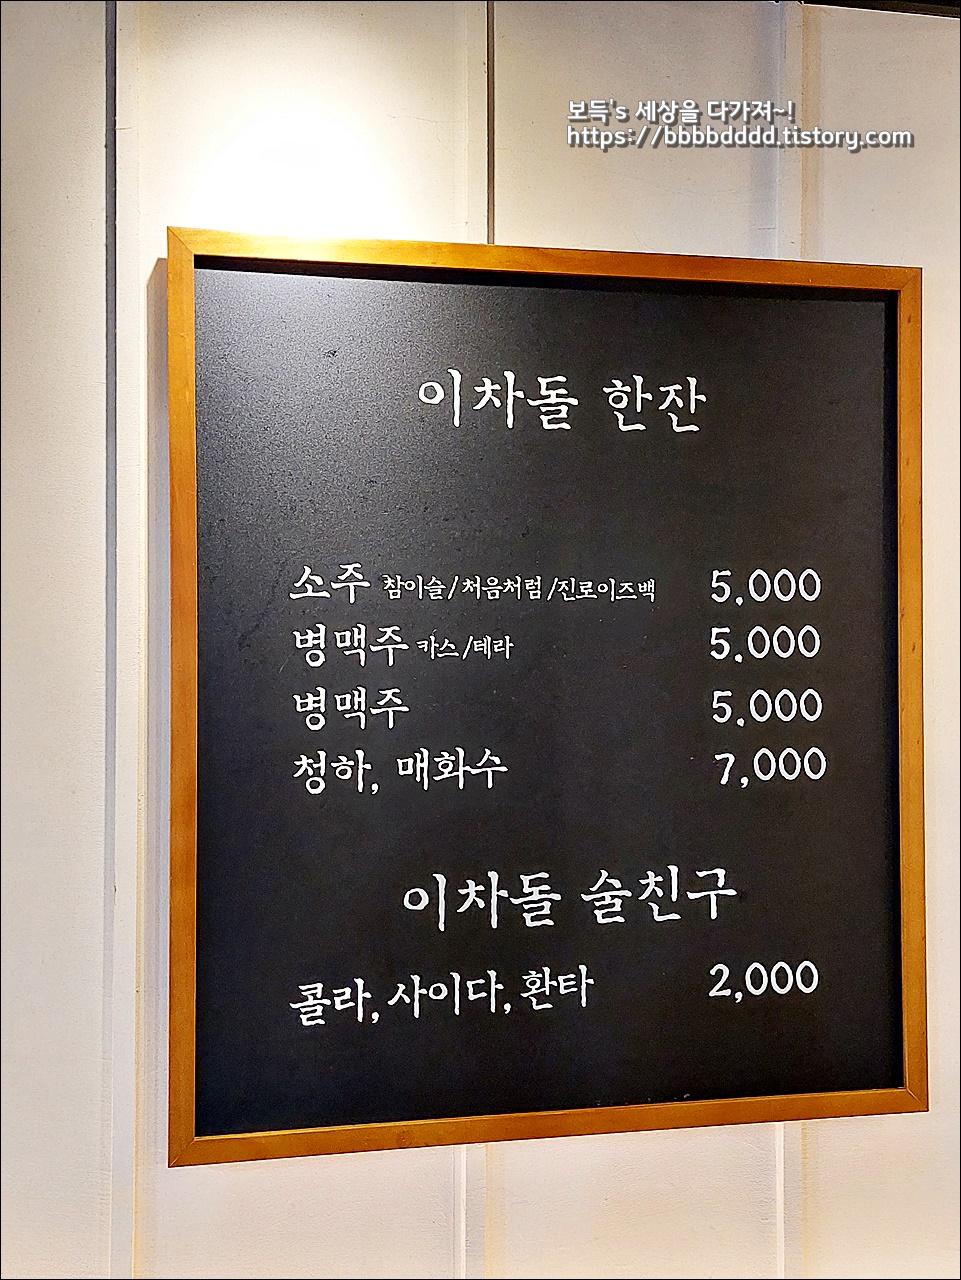 보득's 세상을 다가져~!
https://bbbbdddd.tistory.com
이차돌 한잔
소주 참이슬/처음처럼/진로이즈백 5,000
병맥주 카스/테라 5,000
병맥주 5,000
청하, 매화수 7,000
이차돌 술친구
콜라, 사이다, 환타 2,000